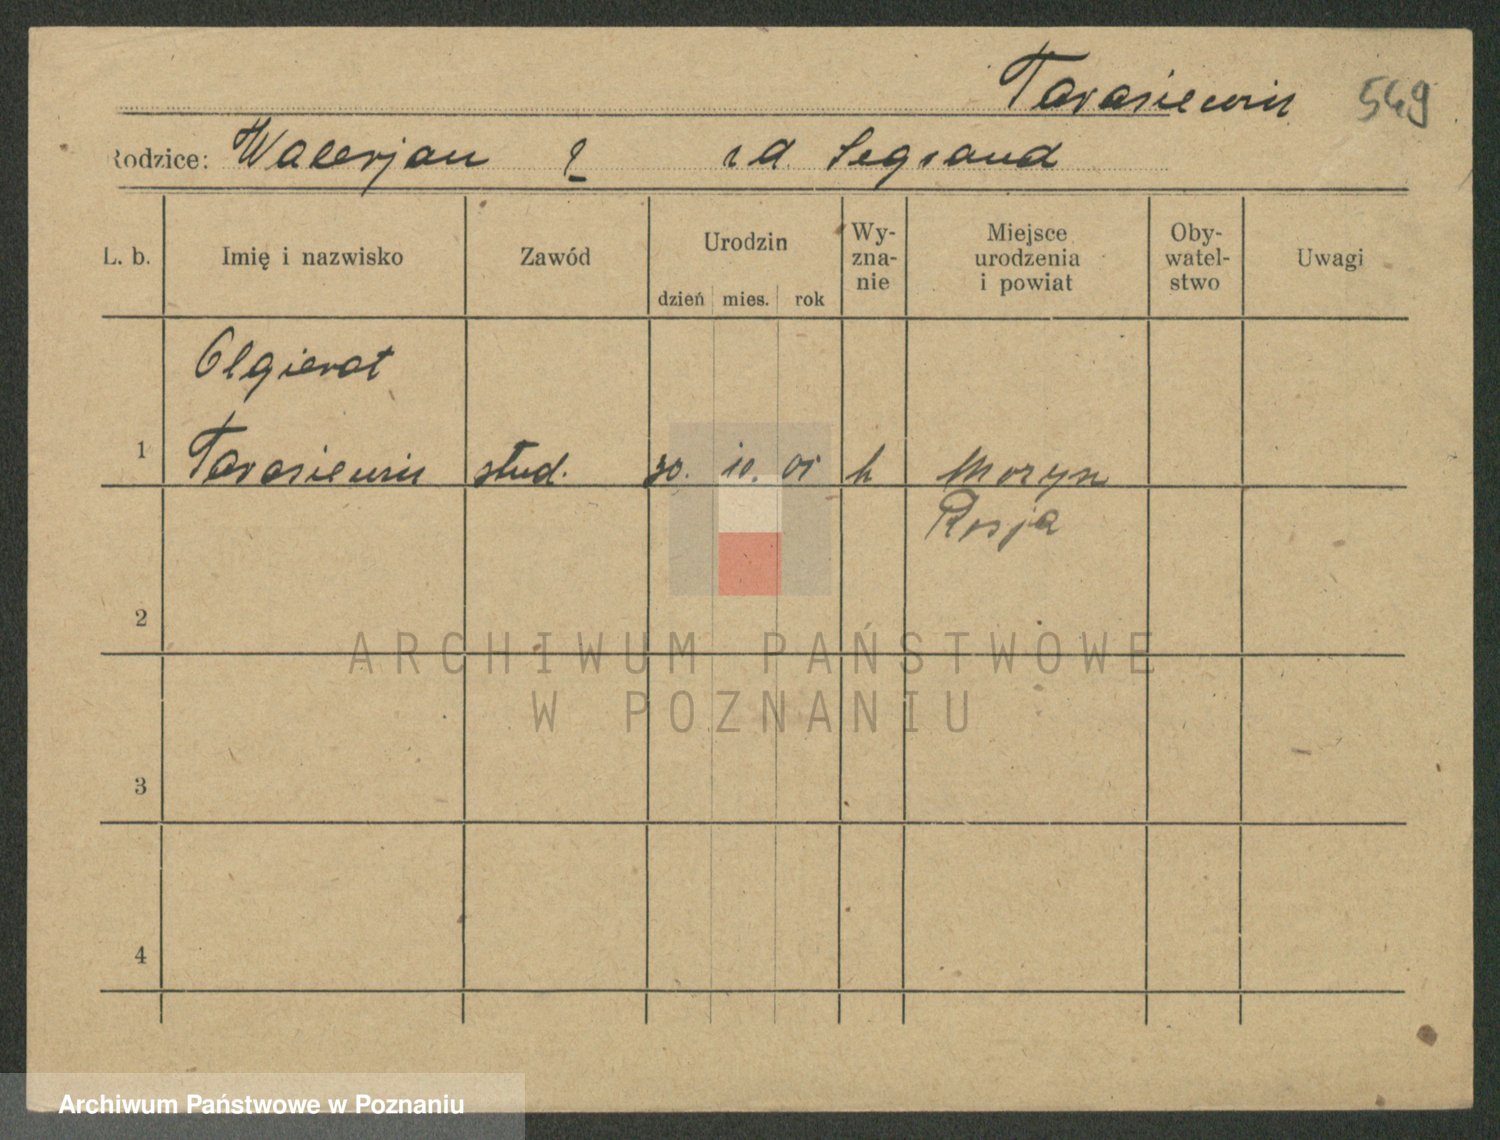 Tarasiewicz 549
Rodzice: Walerjan i z d. Segrand
L. b. Imię i nazwisko Zawód Urodzin Wy- Miejsce Oby- Uwagi
zna- urodzenia watel-
nie i powiat stwo
dzień mies. rok
Olgierd
1 Tarasiewicz stud. 30. 10. 01
Rosja
2
3
4
ARCHIWUM PAŃSTWOWE
W POZNANIU
Archiwum Państwowe w Poznaniu